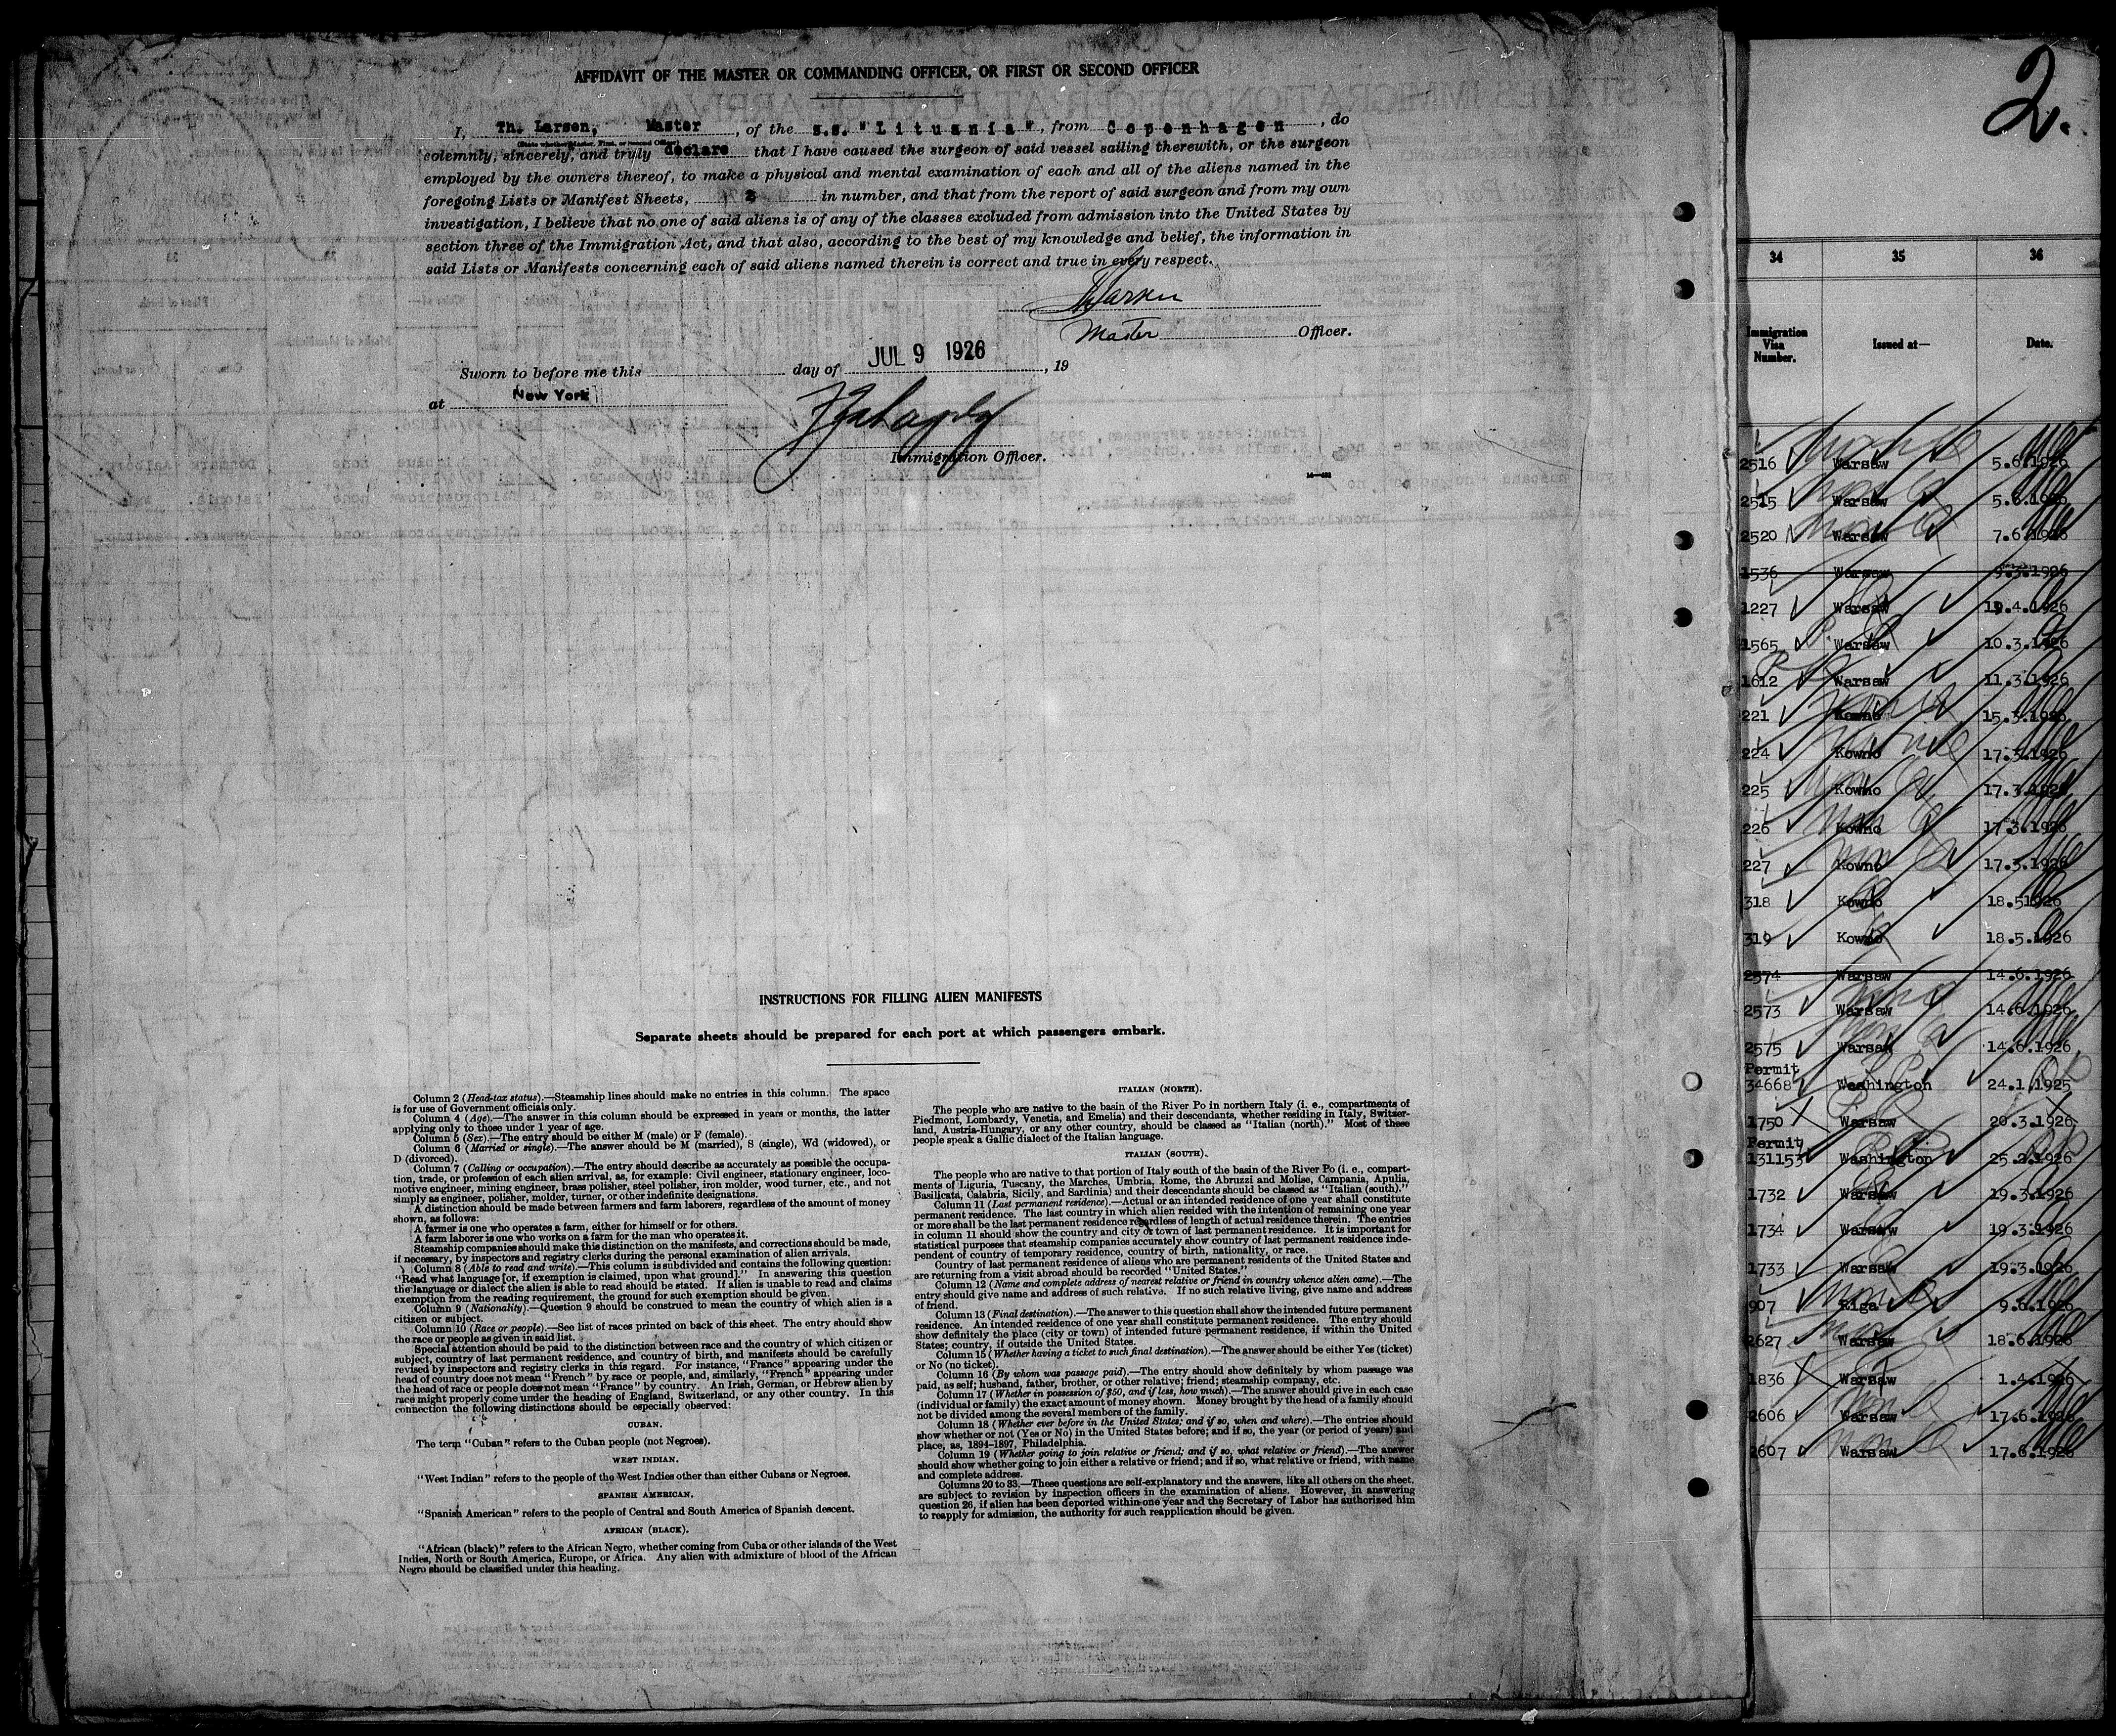 AFFIDAVIT OF THE MASTER OR COMMANDING OFFICER, OR FIRST OR SECOND OFFICER
I, Th. Larsen, Master, of the s.s. "Lituania", from Copenhagen, do
(State whether Master, First, or second Officer)
solemnly, sincerely, and truly declare that I have caused the surgeon of said vessel sailing therewith, or the surgeon
employed by the owners thereof, to make a physical and mental examination of each and all of the aliens named in the
foregoing Lists or Manifest Sheets, 2 in number, and that from the report of said surgeon and from my own
investigation, I believe that no one of said aliens is of any of the classes excluded from admission into the United States by
section three of the Immigration Act, and that also, according to the best of my knowledge and belief, the information in
said Lists or Manifests concerning each of said aliens named therein is correct and true in every respect.
Th Larsen
Master Officer.
Sworn to before me this day of JUL 9 1926, 19
at New York
Immigration Officer.
INSTRUCTIONS FOR FILLING ALIEN MANIFESTS
Separate sheets should be prepared for each port at which passengers embark.
Column 2 (Head-tax status).—Steamship lines should make no entries in this column. The space
is for use of Government officials only.
Column 4 (Age).—The answer in this column should be expressed in years or months, the latter
applying only to those under 1 year of age.
Column 5 (Sex).—The entry should be either M (male) or F (female).
Column 6 (Married or single).—The answer should be M (married), S (single), Wd (widowed), or
D (divorced).
Column 7 (Calling or occupation).—The entry should describe as accurately as possible the occupa-
tion, trade, or profession of each alien arrival, as, for example: Civil engineer, stationary engineer, loco-
motive engineer, mining engineer, brass polisher, steel polisher, iron molder, wood turner, etc., and not
simply as engineer, polisher, molder, turner, or other indefinite designations.
A distinction should be made between farmers and farm laborers, regardless of the amount of money
shown, as follows:
A farmer is one who operates a farm, either for himself or for others.
A farm laborer is one who works on a farm for the man who operates it.
Steamship companies should make this distinction on the manifests, and corrections should be made,
if necessary, by inspectors and registry clerks during the personal examination of alien arrivals.
Column 8 (Able to read and write).—This column is subdivided and contains the following question:
"Read what language [or, if exemption is claimed, upon what ground]." In answering this question
the language or dialect the alien is able to read should be stated. If alien is unable to read and claims
exemption from the reading requirement, the ground for such exemption should be given.
Column 9 (Nationality).—Question 9 should be construed to mean the country of which alien is a
citizen or subject.
Column 10 (Race or people).—See list of races printed on back of this sheet. The entry should show
the race or people as given in said list.
Special attention should be paid to the distinction between race and the country of which citizen or
subject, country of last permanent residence, and country of birth, and manifests should be carefully
revised by inspectors and registry clerks in this regard. For instance, "France" appearing under the
head of country does not mean "French" by race or people, and, similarly, "French" appearing under
the head of race or people does not mean "France" by country. An Irish, German, or Hebrew alien by
race might properly come under the heading of England, Switzerland, or any other country. In this
connection the following distinctions should be especially observed:
CUBAN.
The term "Cuban" refers to the Cuban people (not Negroes).
WEST INDIAN.
"West Indian" refers to the people of the West Indies other than either Cubans or Negroes.
SPANISH AMERICAN.
"Spanish American" refers to the people of Central and South America of Spanish descent.
AFRICAN (BLACK).
"African (black)" refers to the African Negro, whether coming from Cuba or other islands of the West
Indies, North or South America, Europe, or Africa. Any alien with admixture of blood of the African
Negro should be classified under this heading.
ITALIAN (NORTH).
The people who are native to the basin of the River Po in northern Italy (i. e., compartments of
Piedmont, Lombardy, Venetia, and Emelia) and their descendants, whether residing in Italy, Switzer-
land, Austria-Hungary, or any other country, should be classed as "Italian (north)." Most of these
people speak a Gallic dialect of the Italian language.
ITALIAN (SOUTH).
The people who are native to that portion of Italy south of the basin of the River Po (i. e., compart-
ments of Liguria, Tuscany, the Marches, Umbria, Rome, the Abruzzi and Molise, Campania, Apulia,
Basilicata, Calabria, Sicily, and Sardinia) and their descendants should be classed as "Italian (south)."
Column 11 (Last permanent residence).—Actual or an intended residence of one year shall constitute
permanent residence. The last country in which alien resided with the intention of remaining one year
or more shall be the last permanent residence regardless of length of actual residence therein. The entries
in column 11 should show the country and city or town of last permanent residence. It is important for
statistical purposes that steamship companies accurately show country of last permanent residence inde-
pendent of country of temporary residence, country of birth, nationality, or race.
Country of last permanent residence of aliens who are permanent residents of the United States and
are returning from a visit abroad should be recorded "United States."
Column 12 (Name and complete address of nearest relative or friend in country whence alien came).—The
entry should give name and address of such relative. If no such relative living, give name and address
of friend.
Column 13 (Final destination).—The answer to this question shall show the intended future permanent
residence. An intended residence of one year shall constitute permanent residence. The entry should
show definitely the place (city or town) of intended future permanent residence, if within the United
States; country, if outside the United States.
Column 15 (Whether having a ticket to such final destination).—The answer should be either Yes (ticket)
or No (no ticket).
Column 16 (By whom was passage paid).—The entry should show definitely by whom passage was
paid, as self; husband, father, brother, or other relative; friend; steamship company, etc.
Column 17 (Whether in possession of $50, and if less, how much).—The answer should give in each case
(individual or family) the exact amount of money shown. Money brought by the head of a family should
not be divided among the several members of the family.
Column 18 (Whether ever before in the United States; and if so, when and where).—The entries should
show whether or not (Yes or No) in the United States before; and if so, the year (or period of years) and
place, as, 1894-1897, Philadelphia.
Column 19 (Whether going to join relative or friend; and if so, what relative or friend).—The answer
should show whether going to join either a relative or friend; and if so, what relative or friend, with name
and complete address.
Columns 20 to 33.—These questions are self-explanatory and the answers, like all others on the sheet,
are subject to revision by inspection officers in the examination of aliens. However, in answering
question 26, if alien has been deported within one year and the Secretary of Labor has authorized him
to reapply for admission, the authority for such reapplication should be given.
2.
34 35 36
Immigration Visa Number. Issued at— Date.
2516 Warsaw 5.6.1926
2515 Warsaw 5.6.1926
2520 Warsaw 7.6.1926
1536 Warsaw 9.3.1926
1227 Warsaw 19.4.1926
1565 Warsaw 10.3.1926
1612 Warsaw 11.3.1926
221 Kowno 15.3.1926
224 Kowno 17.3.1926
225 Kowno 17.3.1926
226 Kowno 17.3.1926
227 Kowno 17.3.1926
318 Kowno 18.51926
319 Kowno 18.5.1926
2574 Warsaw 14.6.1926
2573 Warsaw 14.6.1926
2575 Warsaw 14.6.1926
Permit
34668 Washington 24.1.1925
1750 Warsaw 20.3.1926
Permit
131153 Washington 25.2.1926
1732 Warsaw 19.3.1926
1734 Warsaw 19.3.1926
1733 Warsaw 19.3.1926
907 Riga 9.6.1926
2627 Warsaw 18.6.1926
1836 Warsaw 1.4.1926
2606 Warsaw 17.6.1926
2607 Warsaw 17.6.1926